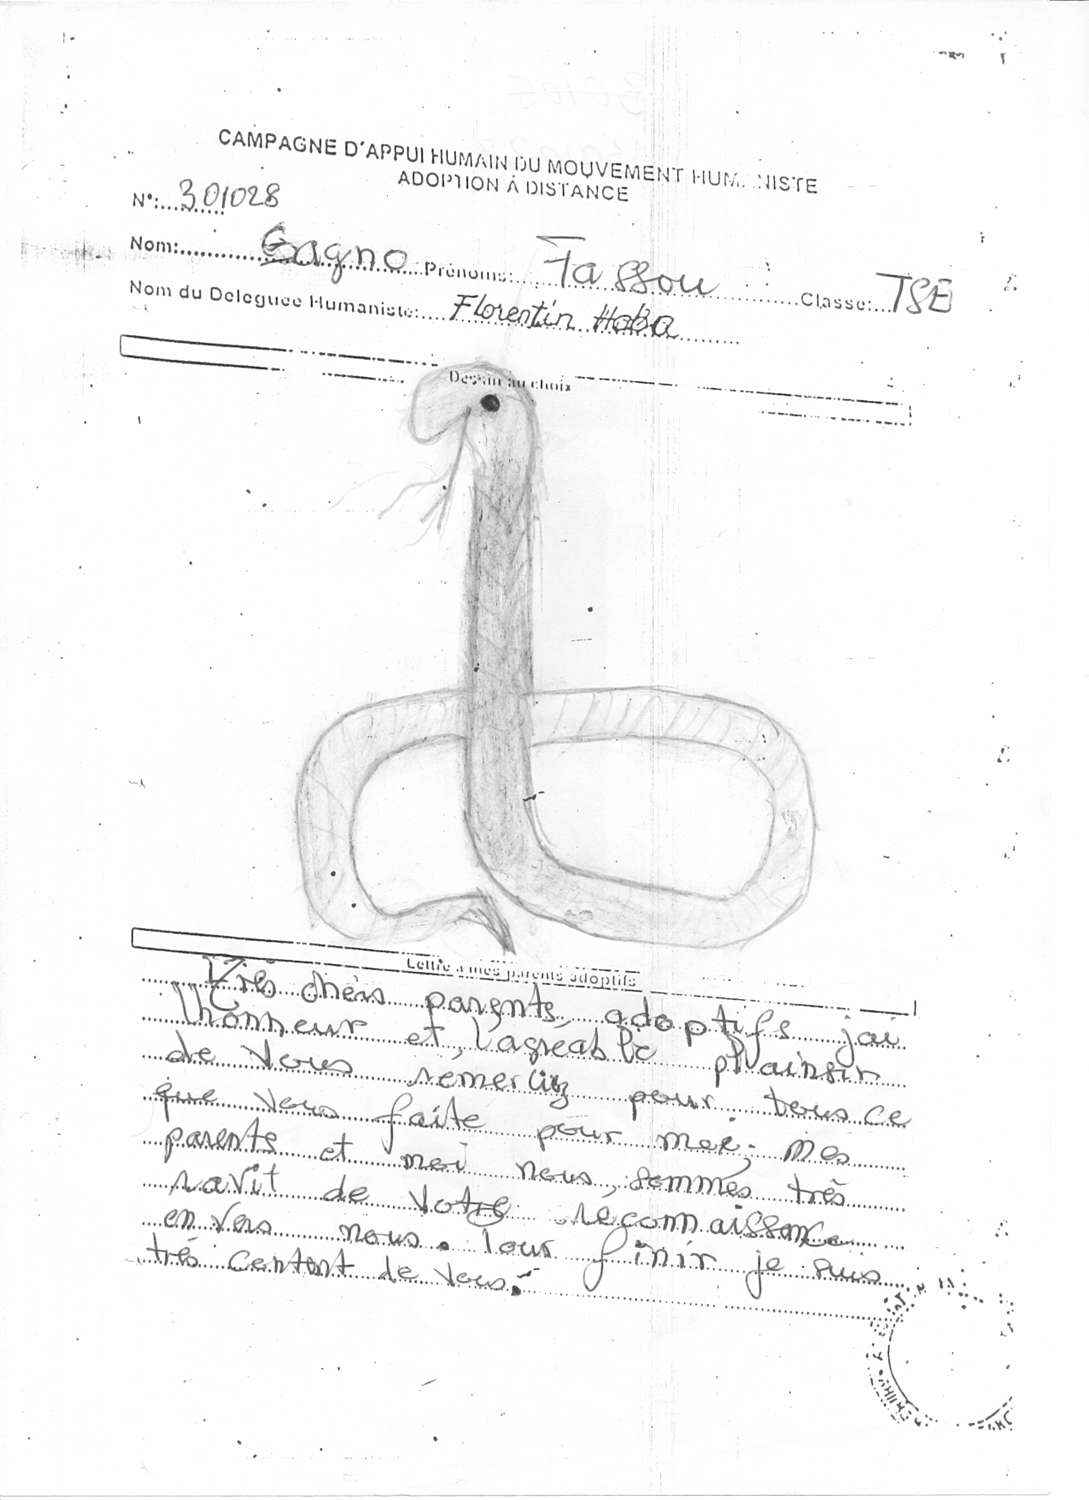 CAMPAGNE D'APPUI HUMAIN DU MOUVEMENT HUMANISTE
ADOPTION À DISTANCE
N°:....301028
Nom:....Gagno Prénoms:....Fassou....Classe:...TSE
Nom du Deleguee Humaniste:....Florentin Haba
Dessin au choix
Lettre a mes parents adoptifs
Très chèrs parents adoptifs jai
lhonneur et, l'agréable plainsir
de vous remerciez pour tous ce
que vous faite pour moi; mes
parents et moi nous, sommes très
ravit de votre reconnaissance
envers nous. Pour finir je suis
très content de vous.